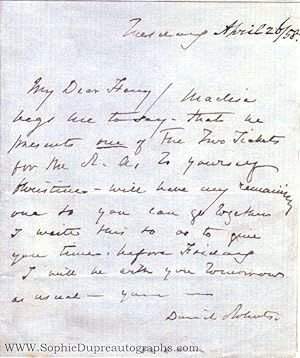 Tuesday April 26/58.
My Dear Henry / Maclise
begs me to say - that he
presents one of The Two Tickets
for the R. A. to yourself
- will have my remaining
one so you can go together
I write this so as to give
you time, before Friday
I will be with you Tomorrow
as usual - yours -
David Roberts.
www.SophieDupreautographs.com
© www.SophieDupreautographs.com